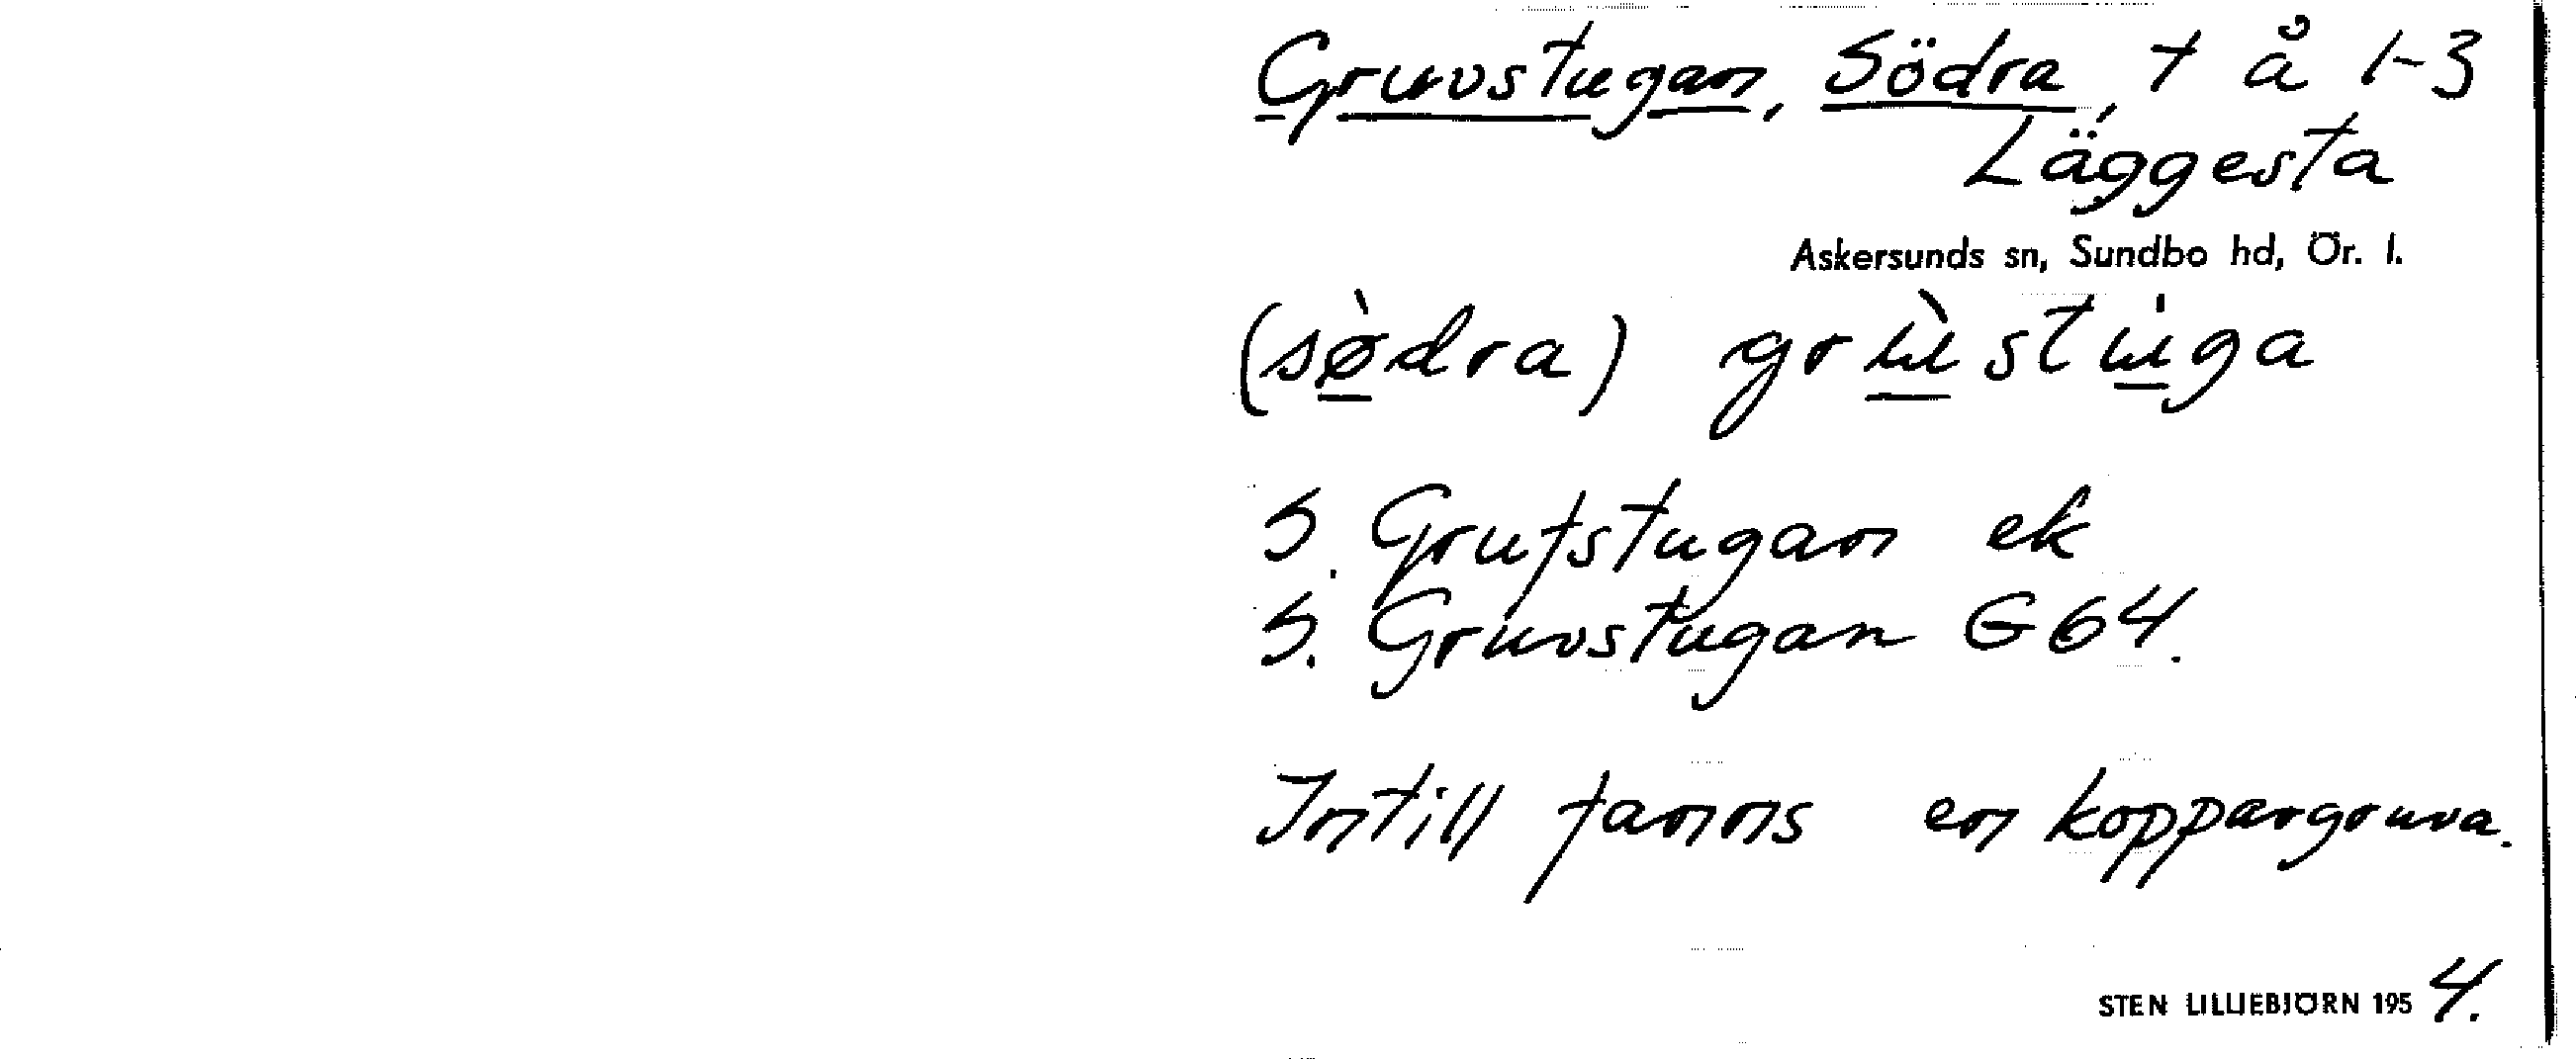 Gruvstugan, Södra, t å 1-3
Läggesta
Askersunds sn, Sundbo hd, Ör. l.
(sø̀dra) grùstúga
S. Grufstugan ek
S. Gruvstugan G64.
Intill fanns en koppargruva.
STEN LILLIEBJÖRN 1954.